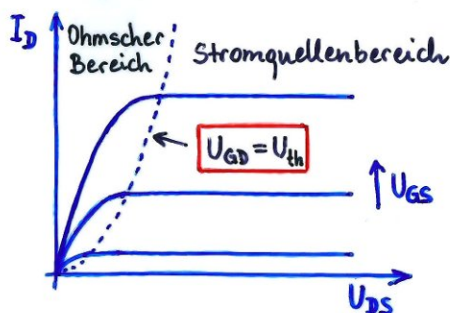 I_D
Ohmscher
Bereich
Stromquellenbereich
U_GD = U_th
U_GS
U_DS